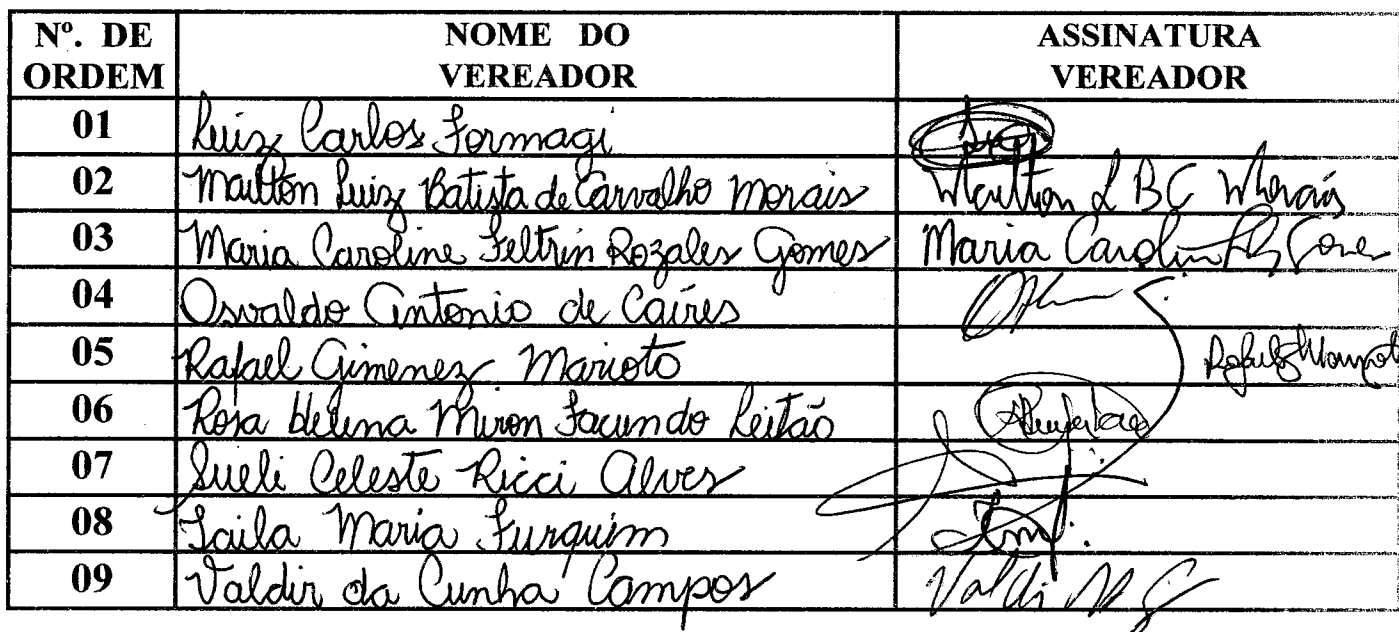 Nº. DE ORDEM NOME DO VEREADOR ASSINATURA VEREADOR
01 Luiz Carlos Formagi
02 Mailton Luiz Batista de Carvalho Morais Mailton L B C Morais
03 Maria Caroline Feltrin Rozales Gomes Maria Carolin
04 Osvaldo Antonio de Caires
05 Rafael Gimenez Marioto
06 Rosa Helena Miron Facundo Leitão
07 Sueli Celeste Ricci Alves
08 Laila Maria Furquim
09 Valdir da Cunha Campos Valdi